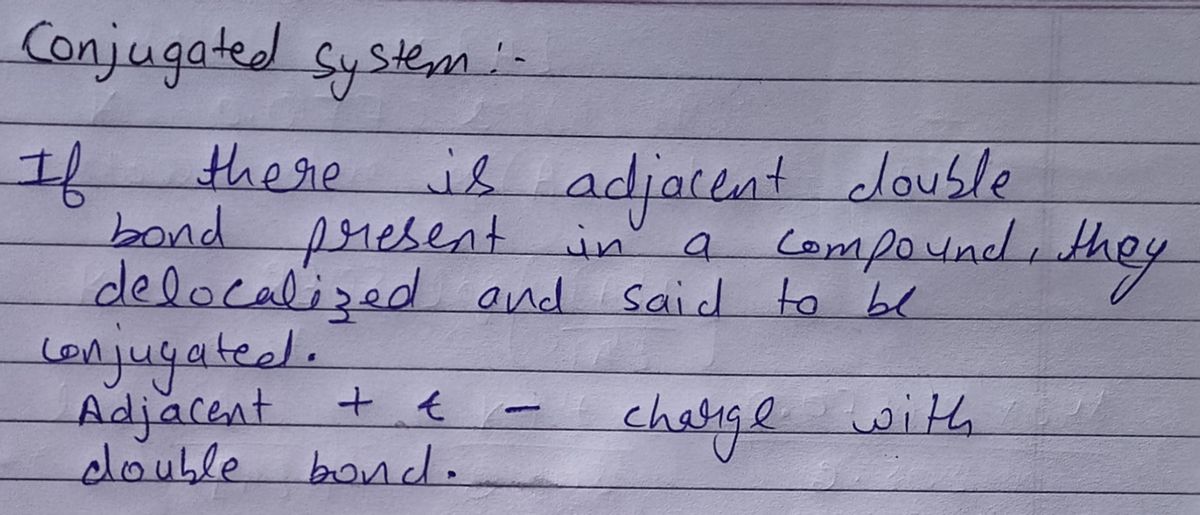 Conjugated system :-
If there is adjacent double
bond present in a compound, they
delocalized and said to be
conjugated.
Adjacent + & - charge with
double bond.